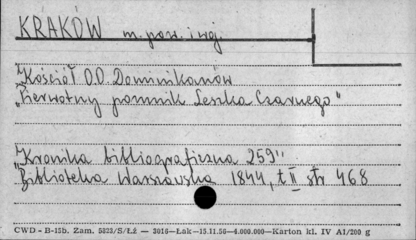 KRAKÓW m. pow. i woj.
"Kościół O.O. Dominikanów
"Pierwotny pomnik Leszka Czarnego"
"Kronika bibliograficzna 259"
Biblioteka Warszawska 1844, t II str 468
CWD - B-15b. Zam. 5323/S/Łź — 3016—Łak—15.11.50—4.000.000—Karton kl. IV A1/200 g